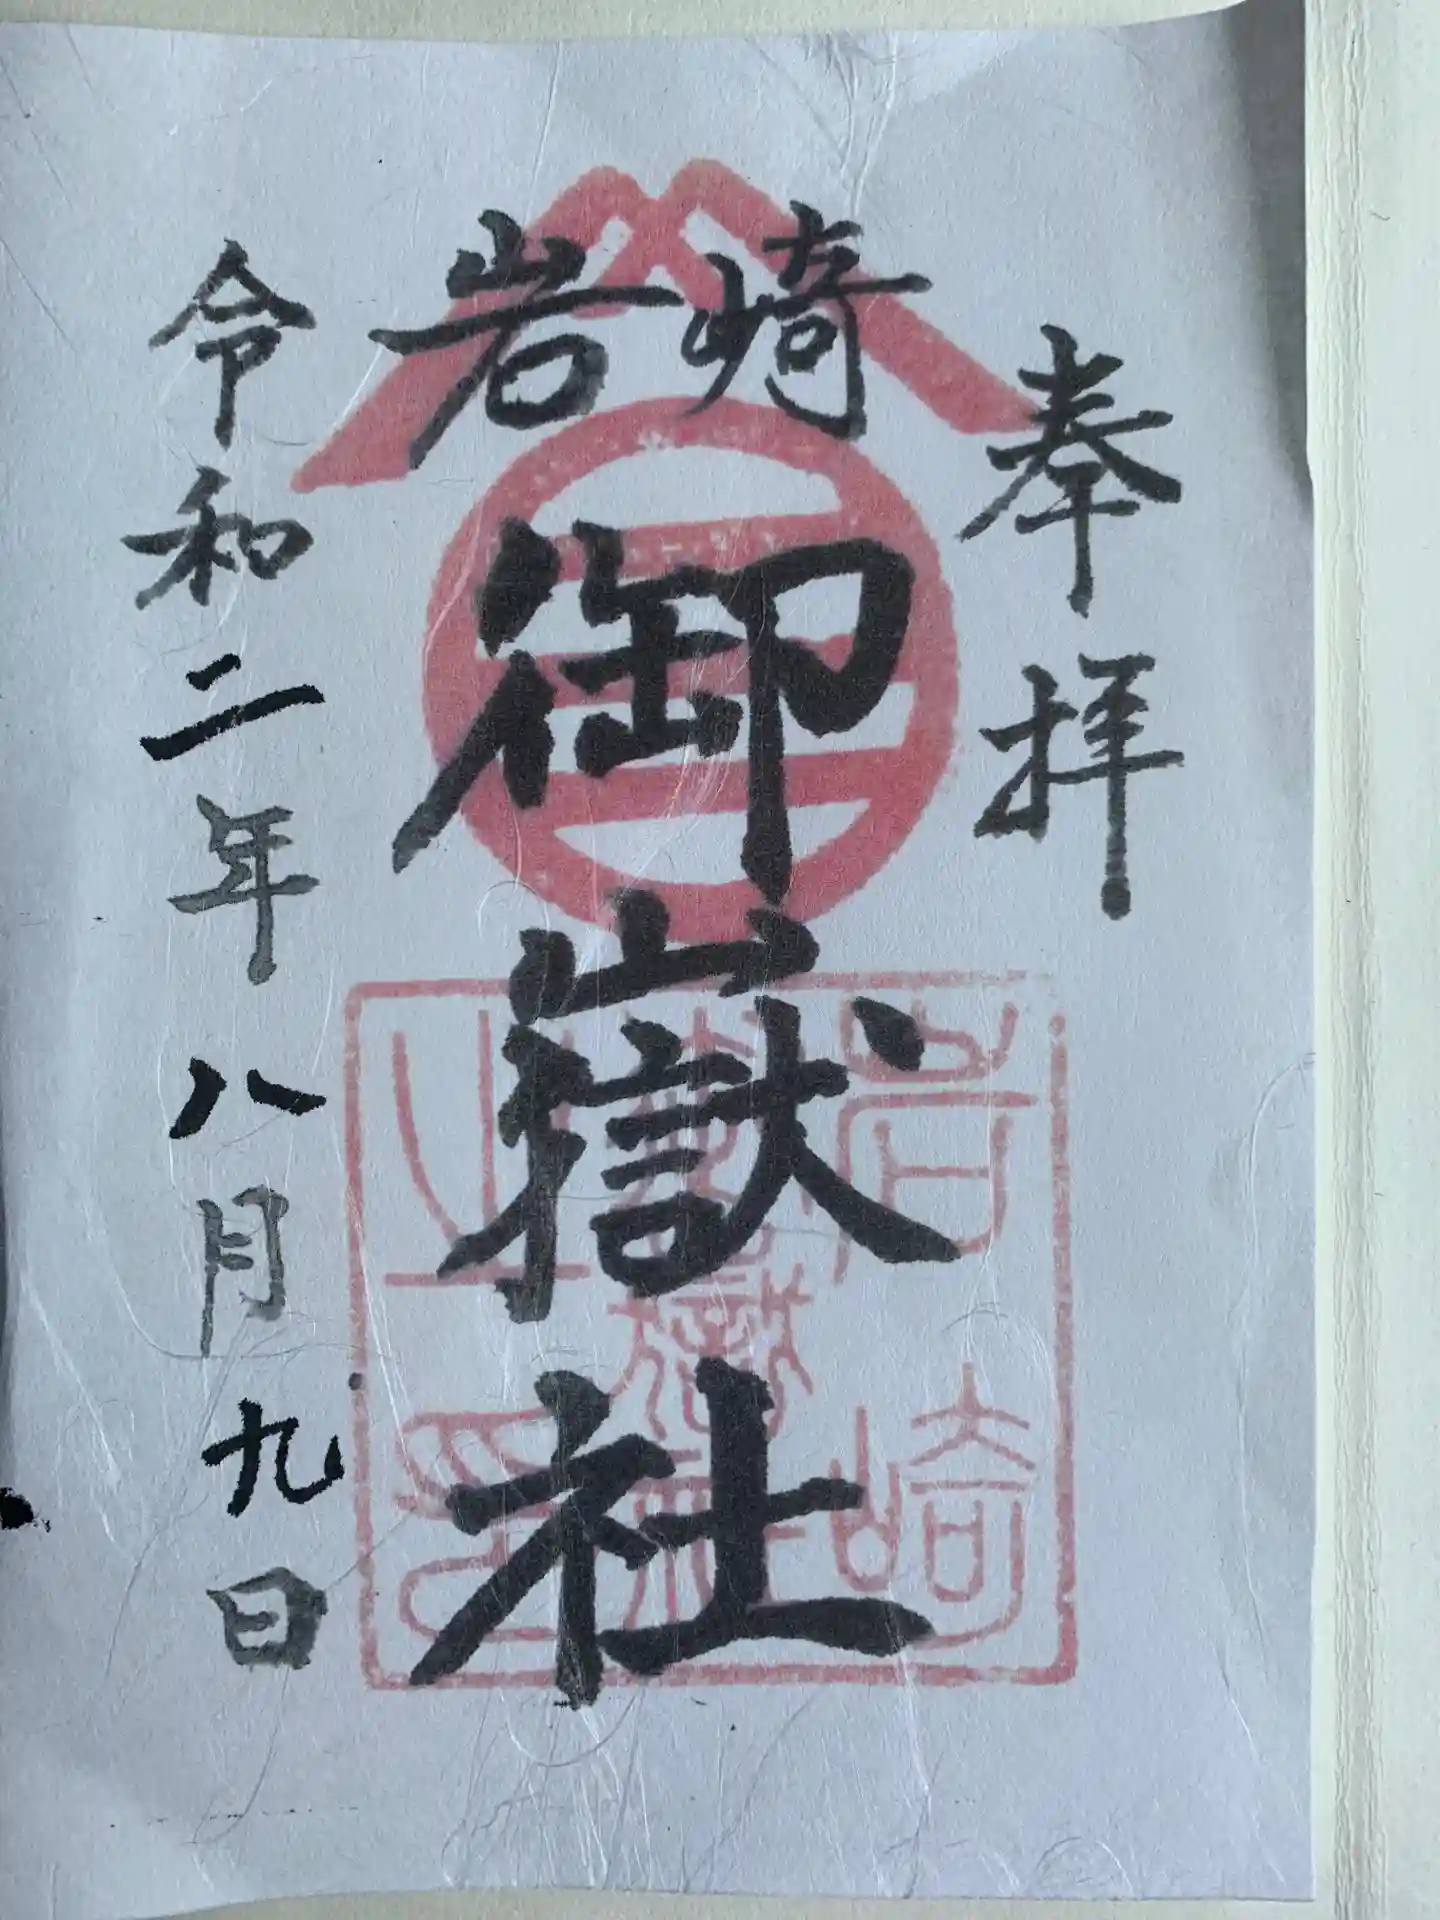 奉拝
岩崎
御嶽社
令和二年八月九日
岩崎
御嶽社
之印